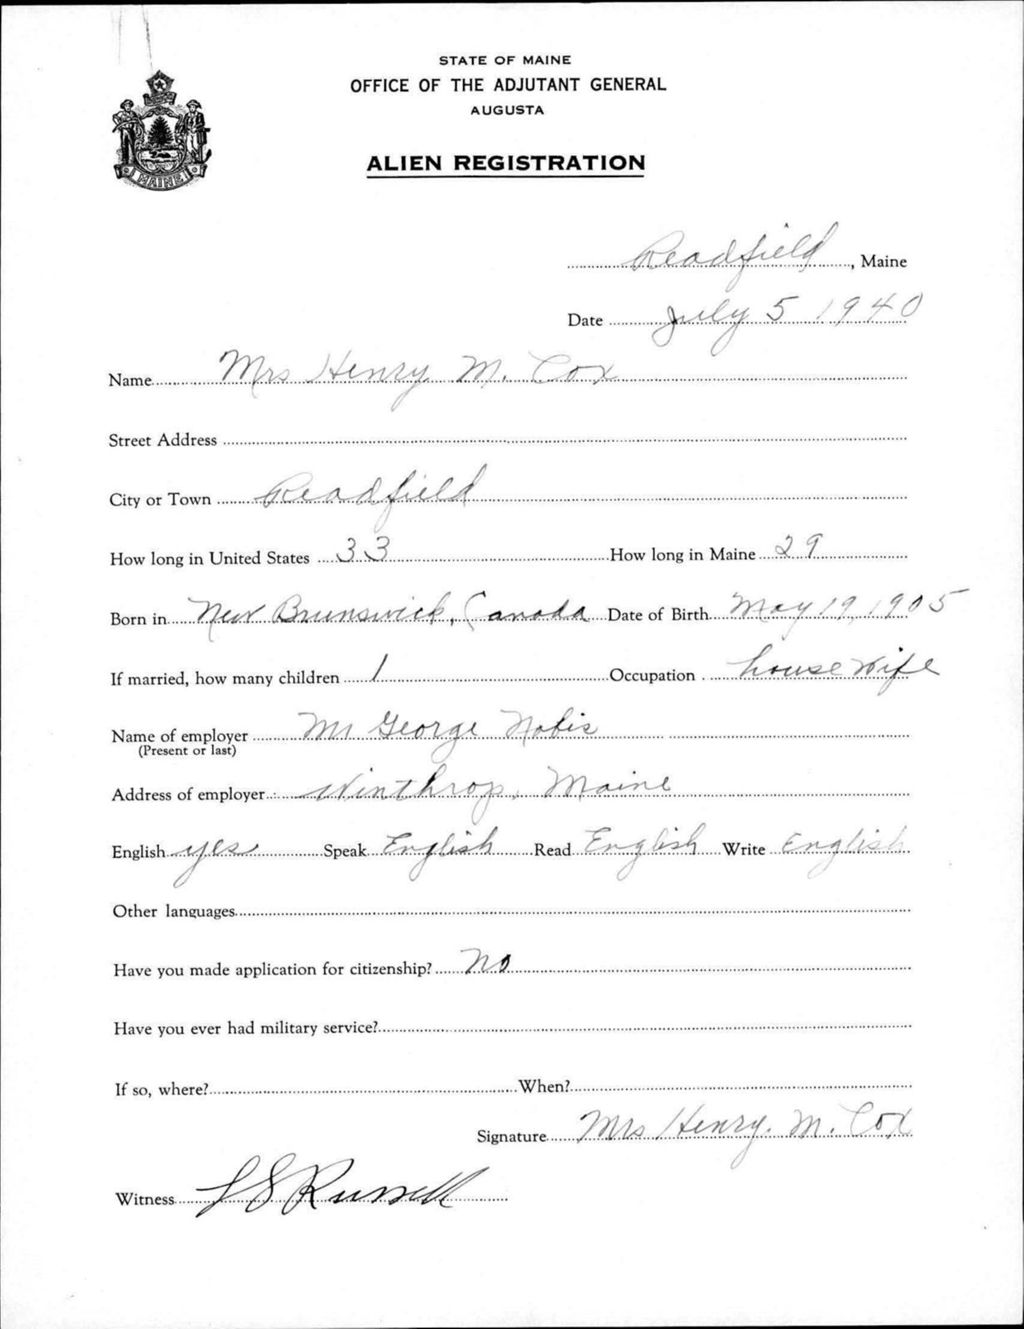 STATE OF MAINE
OFFICE OF THE ADJUTANT GENERAL
AUGUSTA
ALIEN REGISTRATION
MAINE
Readfield, Maine
Date July 5 1940
Name Mrs Henry M. Cox
Street Address
City or Town Readfield
How long in United States 33 How long in Maine 29
Born in New Brunswick, Canada Date of Birth May 19, 1905
If married, how many children 1 Occupation housewife
Name of employer Mr George Nobis
(Present or last)
Address of employer Winthrop, Maine
English yes Speak English Read English Write English
Other languages
Have you made application for citizenship? No
Have you ever had military service?
If so, where? When?
Signature Mrs Henry. M. Cox
Witness L S Russell